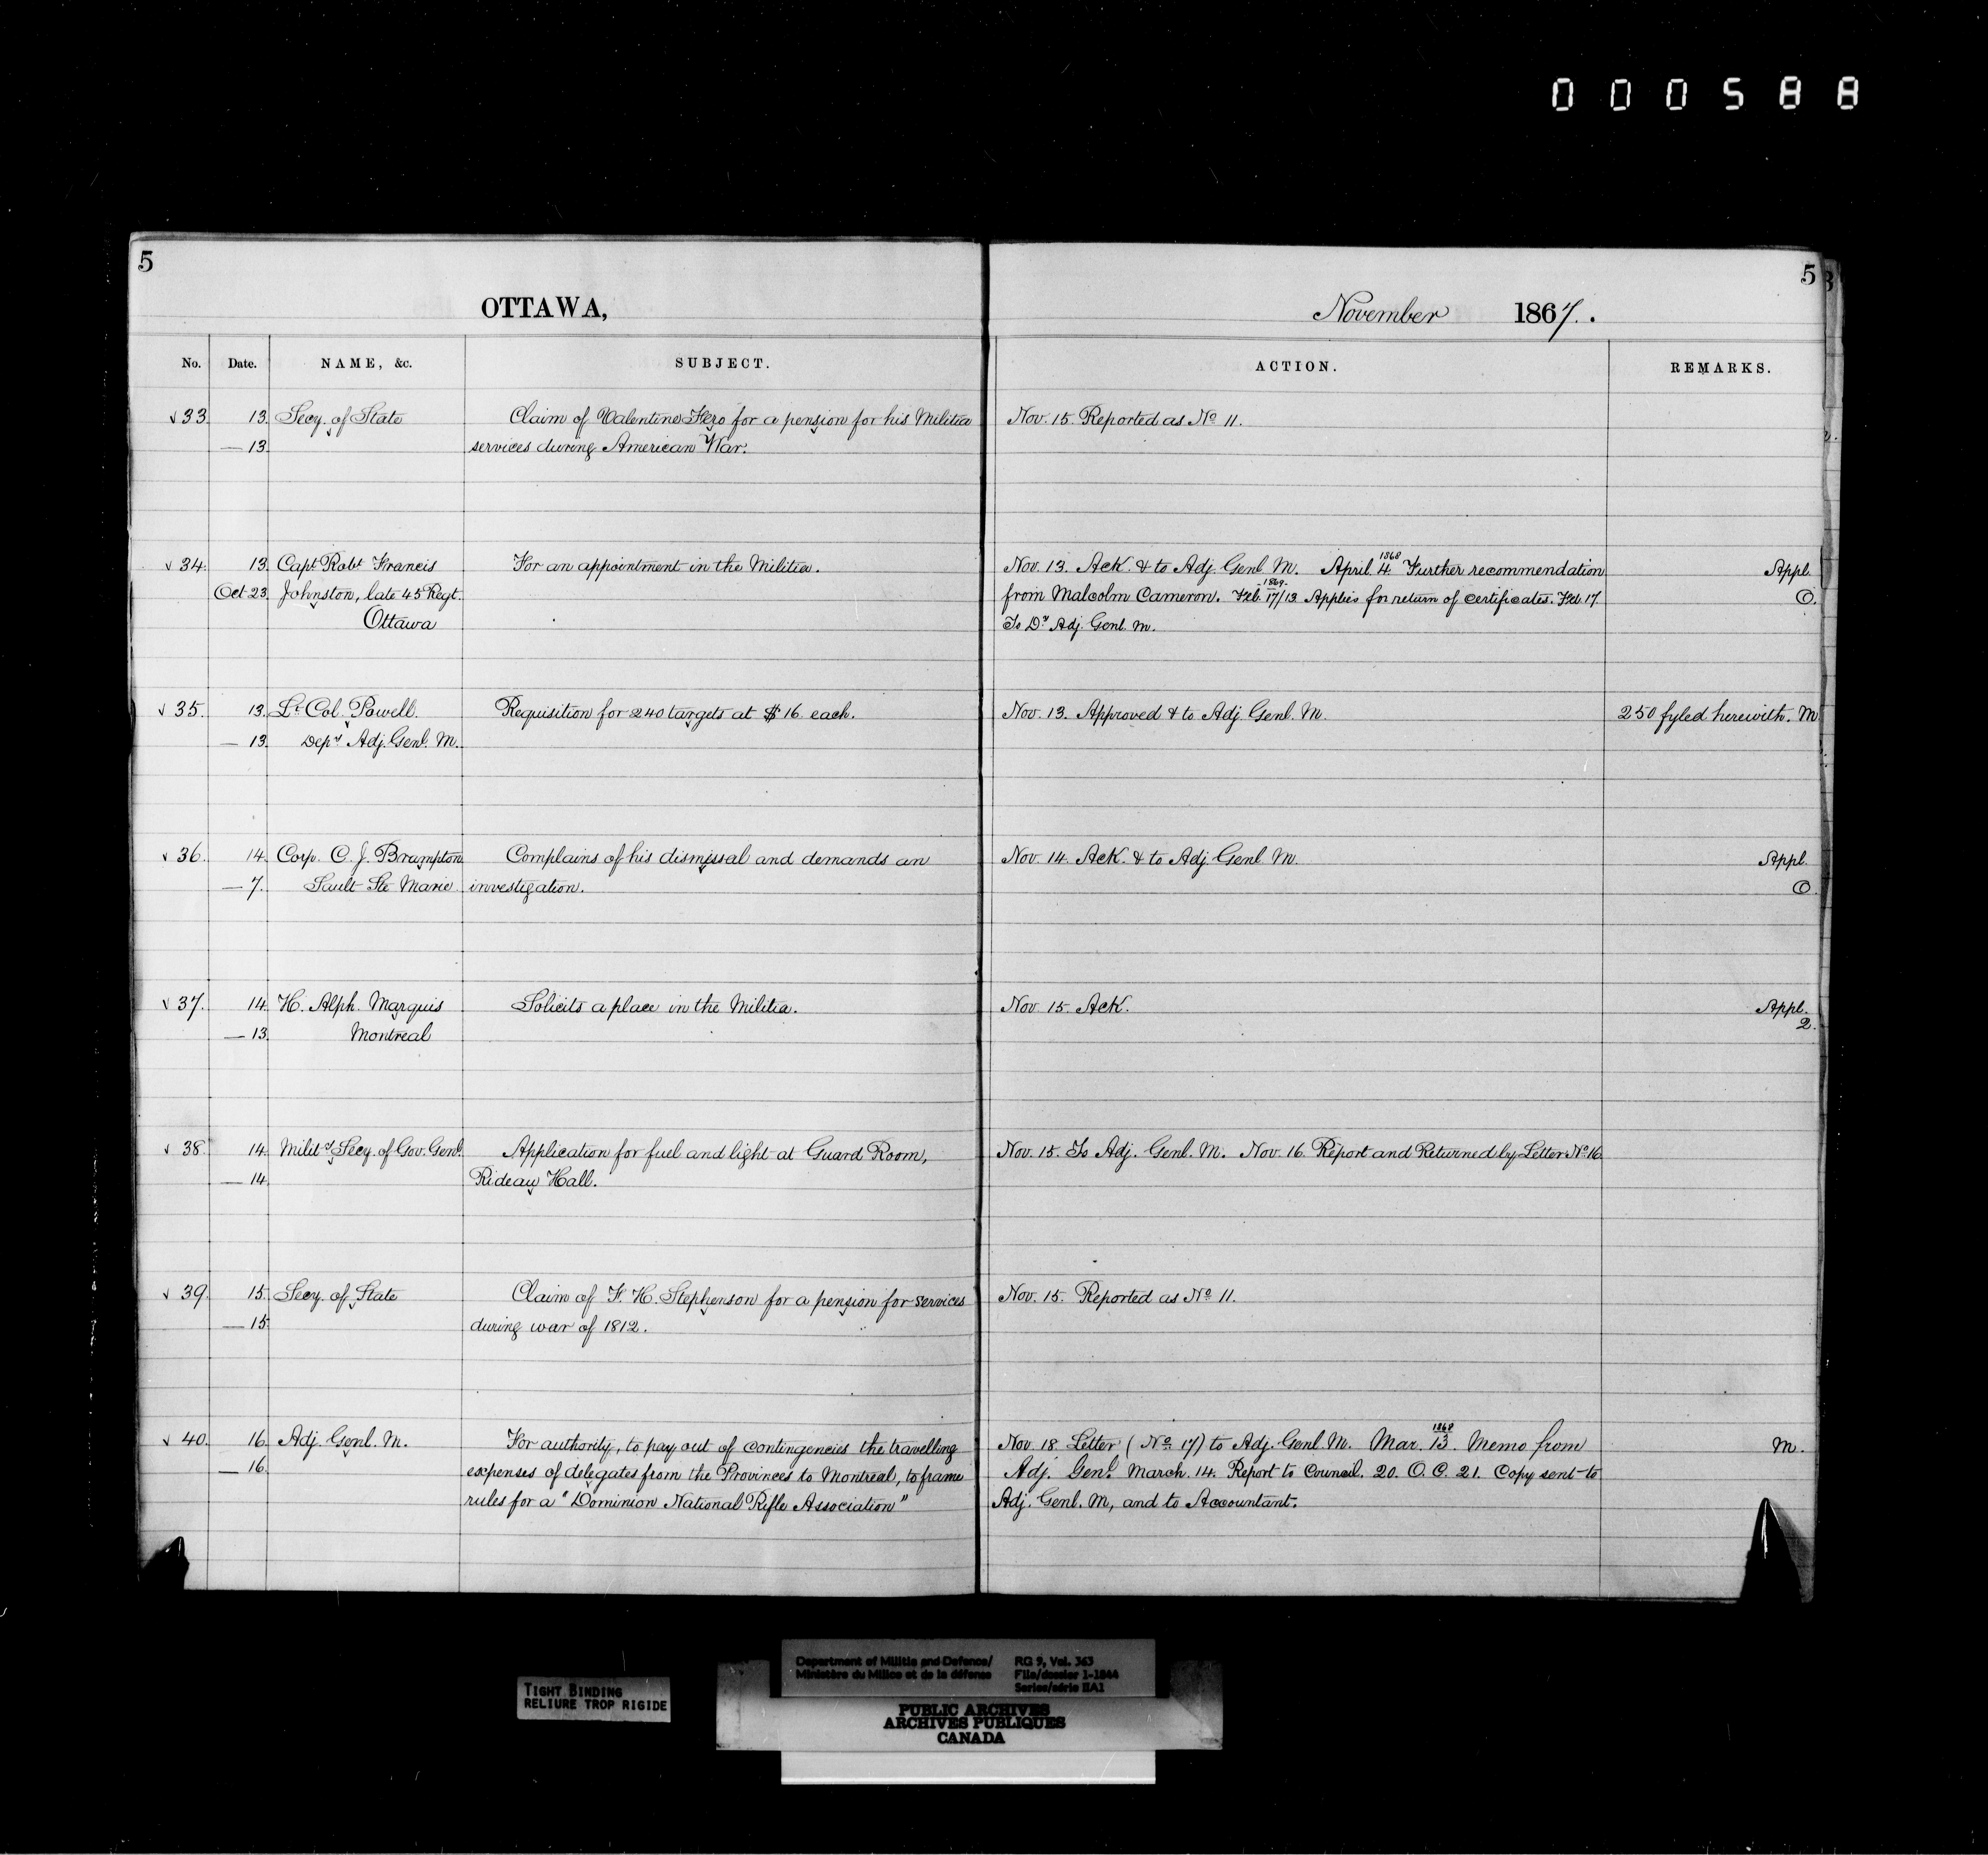 000588
5 5
OTTAWA, November 1867.
No. Date. NAME, &c. SUBJECT. ACTION. REMARKS.
√33 13. Secy. of State Claim of Valentine Hero for a pension for his Militia Nov. 15. Reported as No 11.
— 13. services during American War.
√34. 13. Capt Robt Francis For an appointment in the Militia. Nov. 13. Ack. & to Adj. Genl M. April. 4. 1868 Further recommendation Appl.
Oct 23. Johnston, late 45 Regt. from Malcolm Cameron. Feb. 17/13 1869. Applies for return of certificates. Feb. 17. O.
Ottawa To Dy Adj. Genl. M.
√35. 13. Lt Col. Powell. Requisition for 240 targets at $16. each. Nov. 13. Approved & to Adj. Genl. M. 250 fyled herewith. M
— 13. Depy Adj. Genl. M.
√36. 14. Corp. C. J. Brampton Complains of his dismissal and demands an Nov. 14. Ack. & to Adj. Genl M. Appl.
— 7. Sault Ste Marie investigation. O.
√37. 14. H. Alph. Marquis Solicits a place in the Militia. Nov. 15. Ack. Appl.
— 13. Montreal 2.
√38. 14. Mility Secy. of Gov. Genl. Application for fuel and light at Guard Room, Nov. 15. To Adj. Genl. M. Nov. 16. Report and Returned by Letter No 16.
— 14. Rideau Hall.
√39. 15. Secy. of State Claim of F. H. Stephenson for a pension for services Nov. 15. Reported as No 11.
— 15. during war of 1812.
√40. 16. Adj. Genl. M. For authority, to pay out of contingencies the travelling Nov. 18. Letter (No 17) to Adj. Genl M. Mar. 13. 1868 Memo from M.
— 16. expenses of delegates from the Provinces to Montreal, to frame Adj. Genl. March. 14. Report to Council. 20. O. C. 21. Copy sent to
rules for a "Dominion National Rifle Association" Adj. Genl. M, and to Accountant.
Department of Militia and Defence/ RG 9, Vol. 363
Ministère du Milice et de la défense File/dossier 1-1844
Series/série IIA1
TIGHT BINDING
RELIURE TROP RIGIDE
PUBLIC ARCHIVES
ARCHIVES PUBLIQUES
CANADA